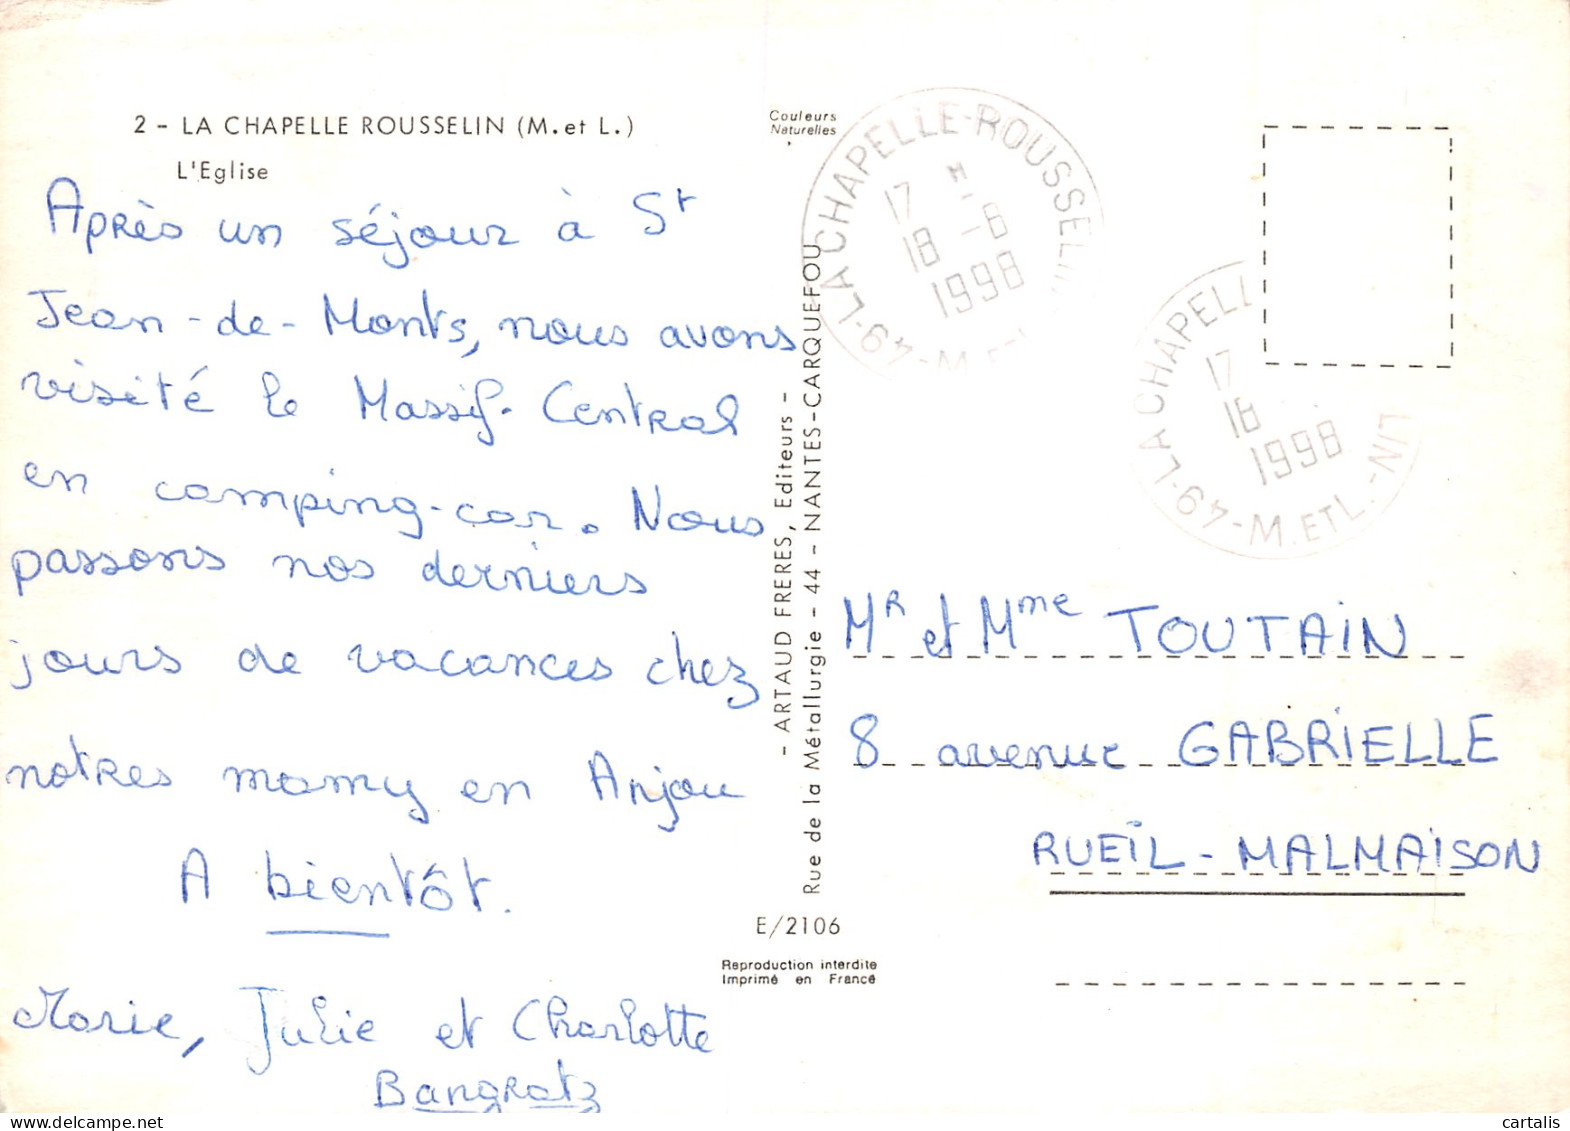 2 - LA CHAPELLE ROUSSELIN (M. et L.)
L'Eglise
Après un séjour à St
Jean-de-Monts, nous avons
visité le Massif-Central
en camping-car. Nous
passons nos derniers
jours de vacances chez
notres mamy en Anjou
A bientôt.
Marie, Julie et Charlotte
Bangratz
Couleurs
Naturelles
- ARTAUD FRERES, Editeurs -
Rue de la Métallurgie - 44 - NANTES-CARQUEFOU
E/2106
Reproduction interdite
Imprimé en France
LA CHAPELLE-ROUSSELIN
17 H
18 -6
1998
49 - M.
LA CHAPELL
LIN
17
18
1998
49 - M. ET L. -
Mr et Mme TOUTAIN
8 avenue GABRIELLE
RUEIL-MALMAISON
cartalis